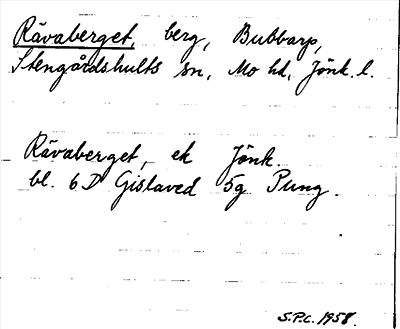 Rävaberget, berg, Bubbarp,
Stengårdshults sn, Mo hd, Jönk. l.
Rävaberget, ek Jönk.
bl. 6 D Gislaved 5g Pung.
S.P.C. 1958.